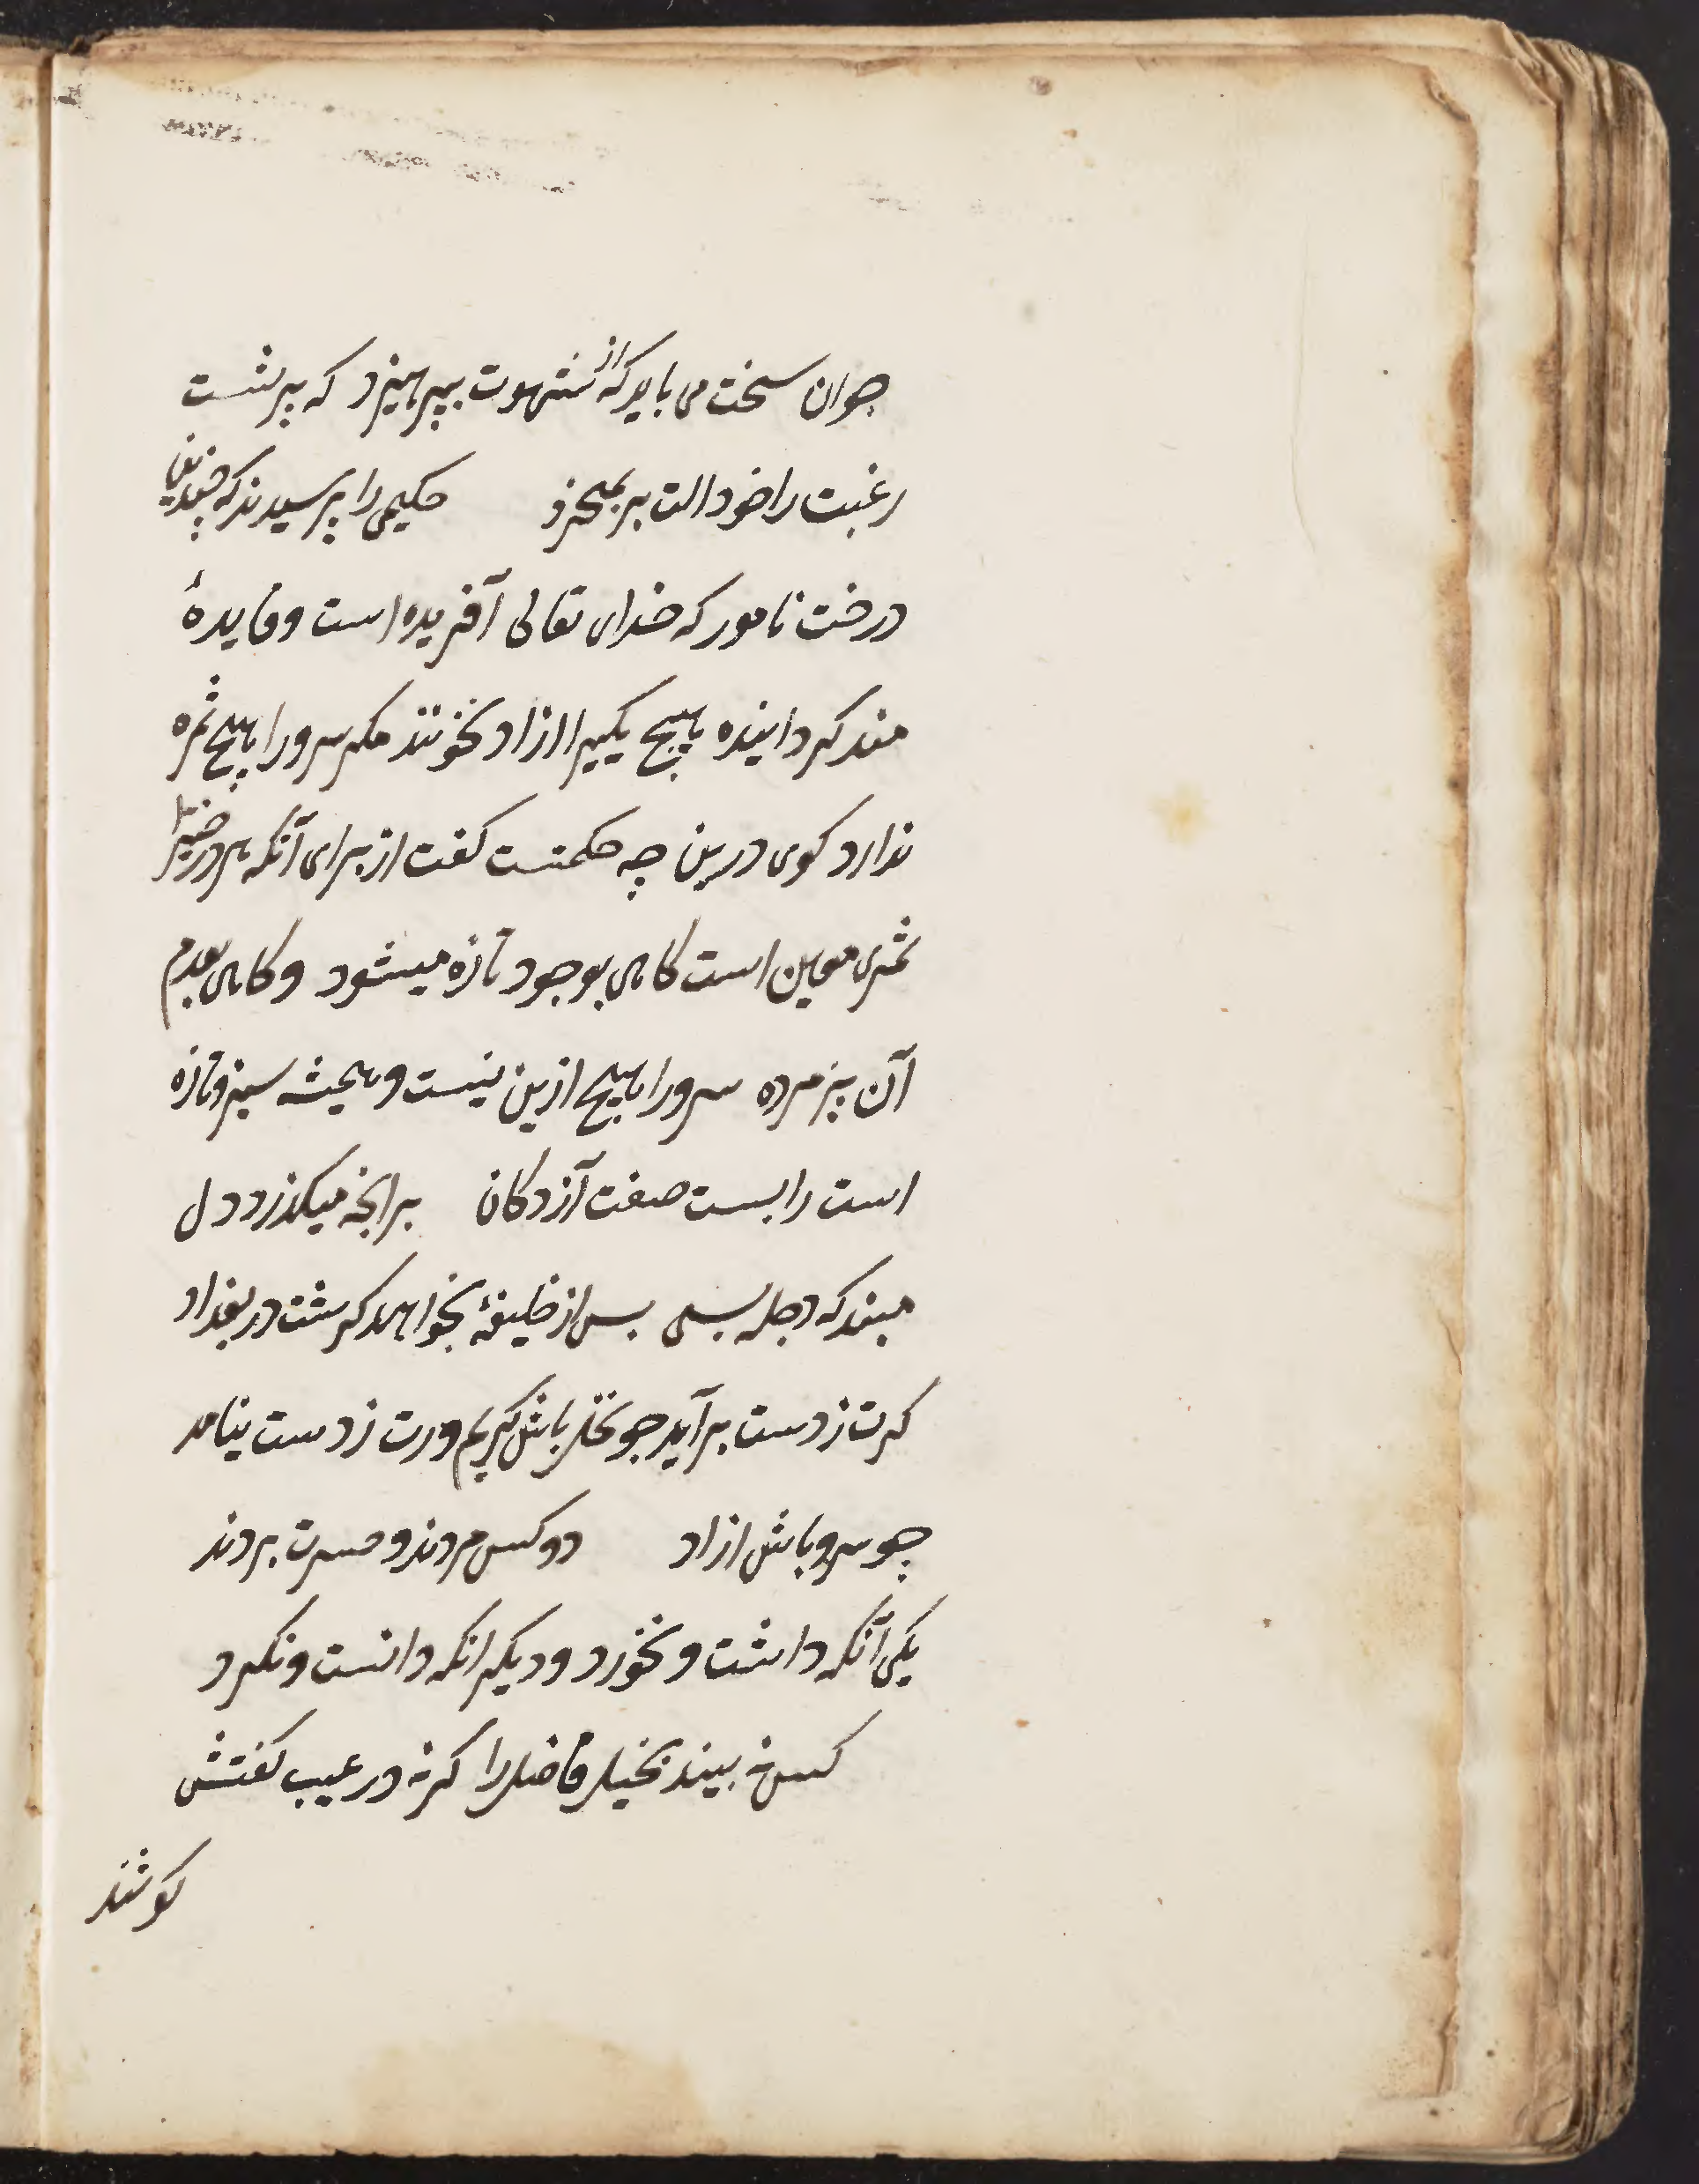 جوان سخت می باید که از شهوت بپرهیزد که پیر سست
رغبت را خود الت بر نمیخیزد حکیمی را پرسیدند که چندین
درخت نامور که خدای تعالی آفریده است و فایدهٔ
مند کردانیده پهیج یکیرا ازاد نخونند مکر سرو را پهیج ثمره
ندارد کوی درین چه حکمتست کفت از برای آنکه هر درختیرا
ثمری معین است کاهی بوجود تازه میشود و کاهی بعدم
آن پزمرده سرو را هیچ ازین نیست و همیشه سبز و تازه
است را بست صفت آزدکان برانچه میکذرد دل
مبند که دجله بسی بس از خلیفهٔ بخواهد کرشت در بغداد
کرت ز دست برآید جو نخل باش کریم ورت ز دست نیامد
چو سرو باش ازاد دو کس مردند و حسرت بردند
یکی آنکه داشت و نخورد و دیکر انکه دانست و نکرد
کس نه بیند بخیل فاضل را کر نه در عیب کفتش
کوشند